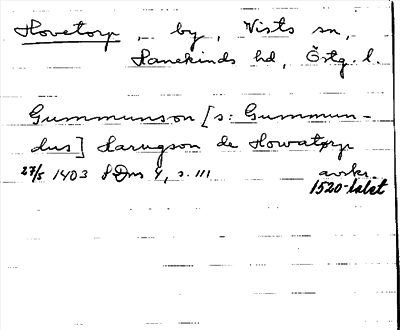 Hovetorp, by, Vists sn,
Hanekinds hd, Östg. l.
Gummunson [s: Gummun-
dus] Harugson de Howatorp
27/5 1403 SDns 1, s. 111 avskr.
1520-talet